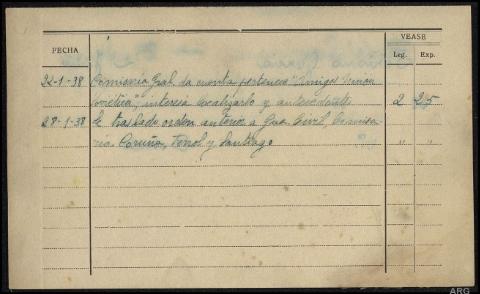 VEASE
FECHA
Leg. Exp.
22-1-38 Comisaria Gral. da cuenta pertenece "Amigos Unión
Soviética", interesa localizarlo y antecedentes 2 25
28-1-38 Se traslada orden anterior a Gua. Civil, Comisa-
ría Coruña, Ferrol y Santiago
ARG